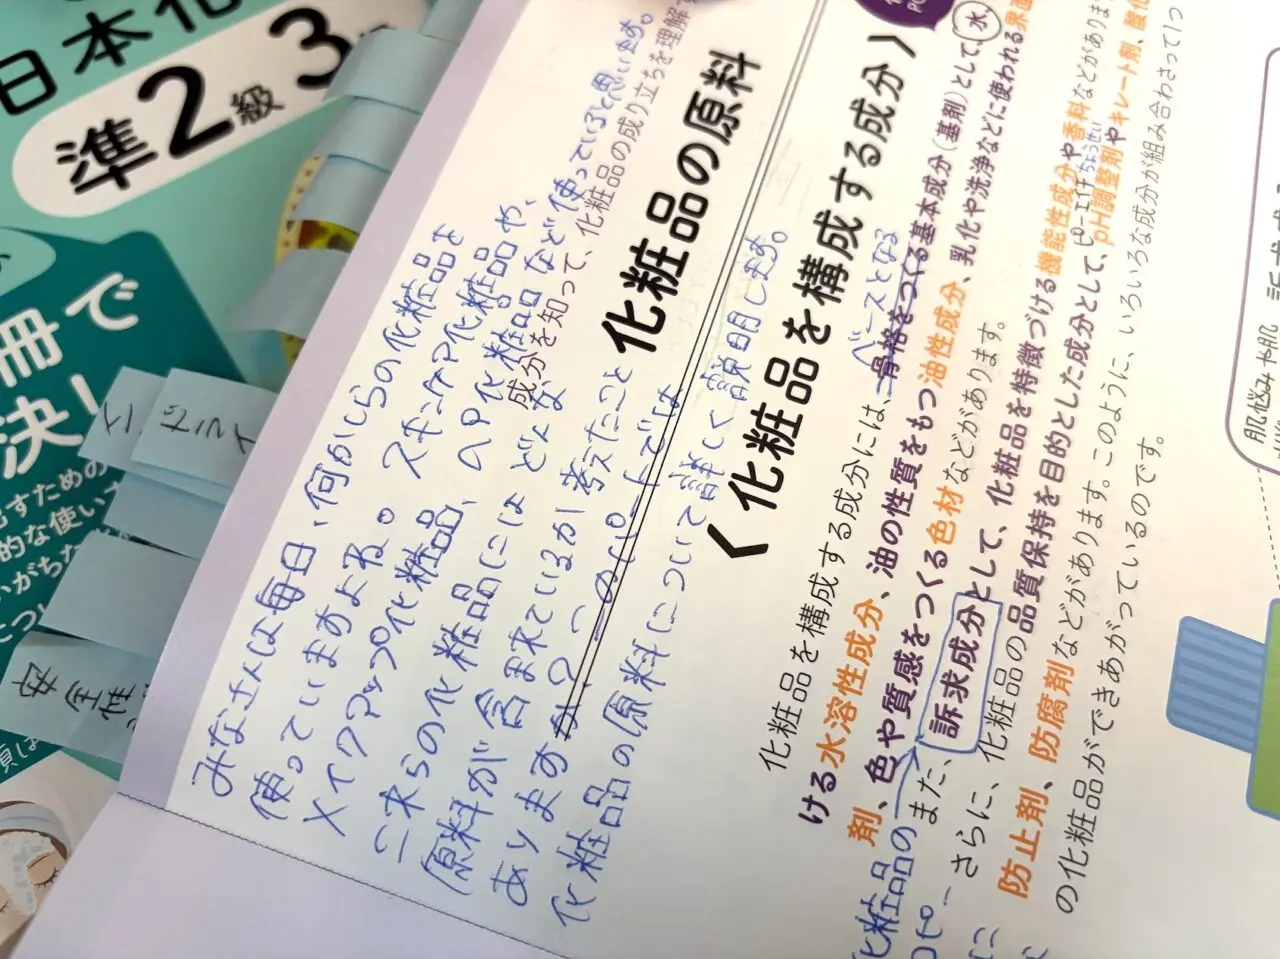 日本化
準2級3
冊で
決!
ドライ
安全性
みなさんは毎日、何かしらの化粧品を
使っていますよね。スキンケア化粧品や、
メイクアップ化粧品、ヘア化粧品など使っていると思います。
これらの化粧品には どんな
原料が含まれているか考えたこと
ありますか?
化粧品の原料について詳しく説明します。
成分を知って、化粧品の成り立ちを理解
化粧品の原料
〈化粧品を構成する成分〉
ベースとなる
化粧品を構成する成分には、骨格をつくる基本成分(基剤)として、水
ける水溶性成分、油の性質をもつ油性成分、乳化や洗浄などに使われる界面
剤、色や質感をつくる色材などがあります。
化粧品の
また、訴求成分として、化粧品を特徴づける機能性成分や香料などがあります
ピーエイチちょうせい
さらに、化粧品の品質保持を目的とした成分として、pH調整剤やキレート剤、酸化
防止剤、防腐剤などがあります。このように、いろいろな成分が組み合わさって1つ
の化粧品ができあがっているのです。
肌悩みや肌